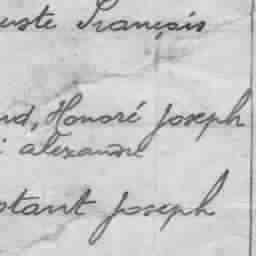 uste François
ud, Honoré Joseph
i alexandre
stant Joseph